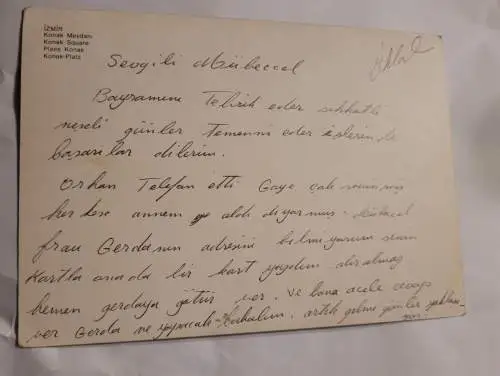 İZMİR
Konak Meydanı
Konak Square
Place Konak
Konak-Platz
Sevgili Mübeccel
Bayramını Tebrik eder sıhhatli
neşeli günler Temenni eder işlerinde
başarılar dilerim.
Orhan Telefon etti Gaye çok
herkese annem diyormuş
frau Gerdanın adresini bilmiyorum
Kartla ona da bir kart yazdım
hemen gerdaya götür ver. Ve bana acele cevap
ver Gerda ne yapacak artık gelme günleri